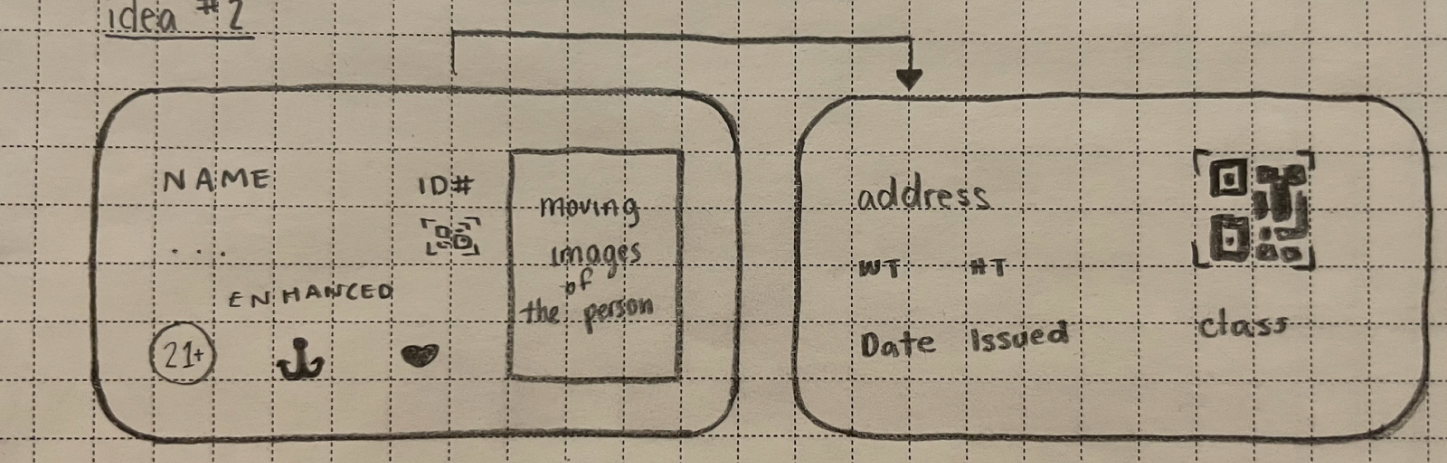 idea #2
NAME
ID#
...
ENHANCED
21+
moving
images
of
the person
address
WT HT
Date Issued
class